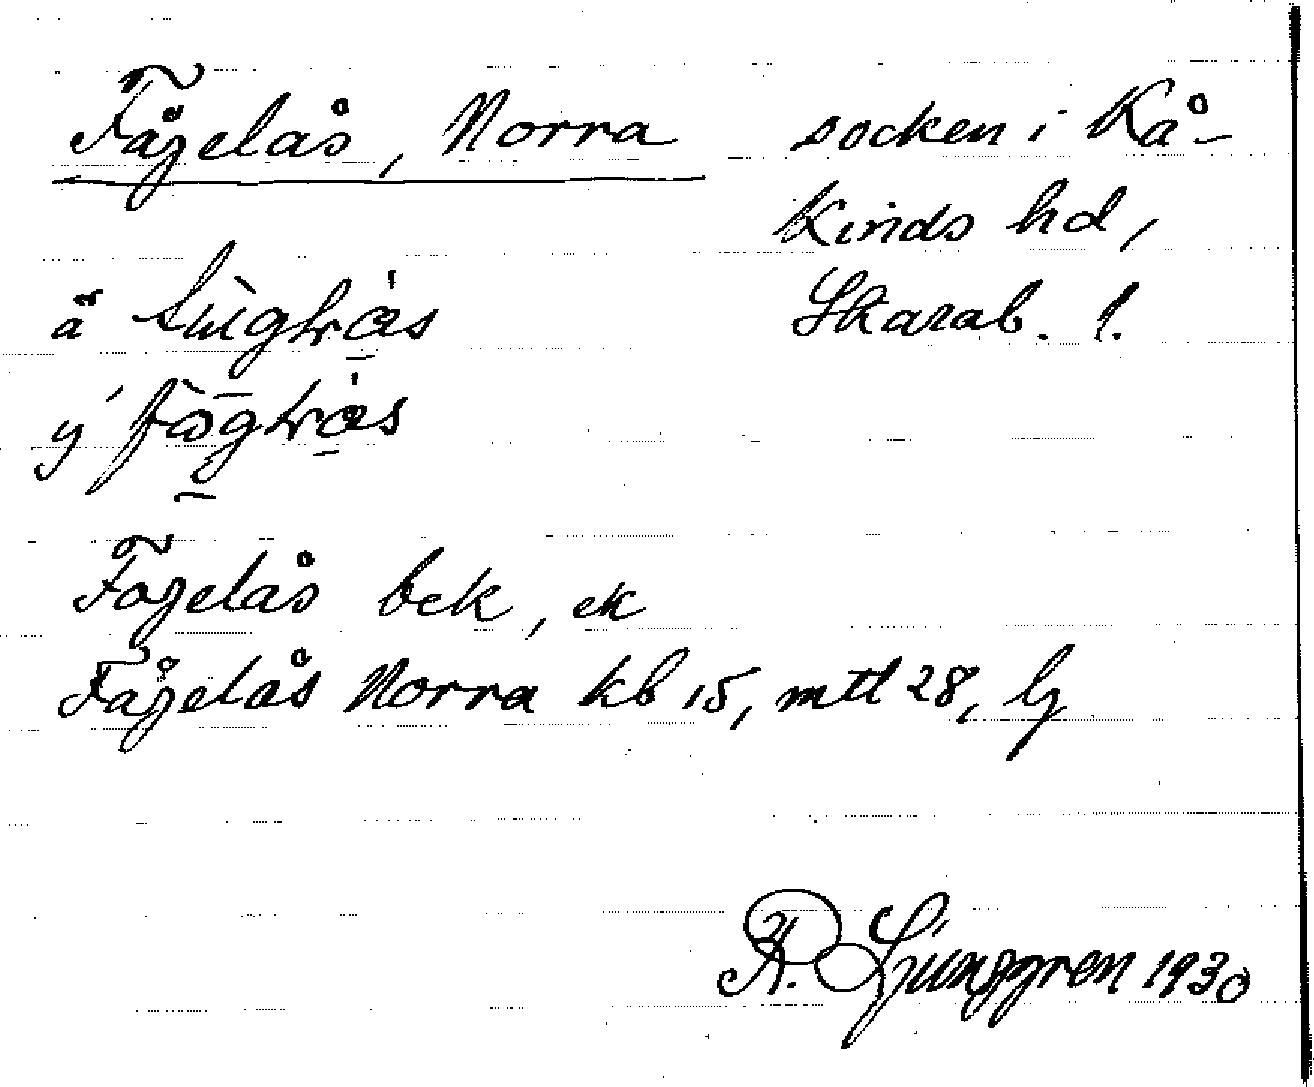 Fågelås, Norra socken i Kå-
kinds hd,
Skarab. l.
ä
y
Fogelås bek, ek
Fågelås Norra kb 15, mtl 28, lg
R. Ljunggren 1930